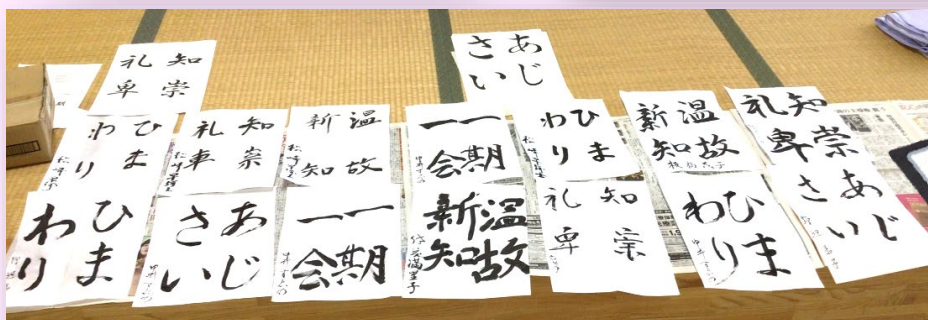 知崇
礼卑
あじ
さい
ひま
わり
知崇
礼車
温故
新知
一期
一会
ひま
わり
温故
新知
知崇
礼卑
ひま
わり
あじ
さい
一期
一会
温故
新知
知崇
礼卑
ひま
わり
あじ
さい